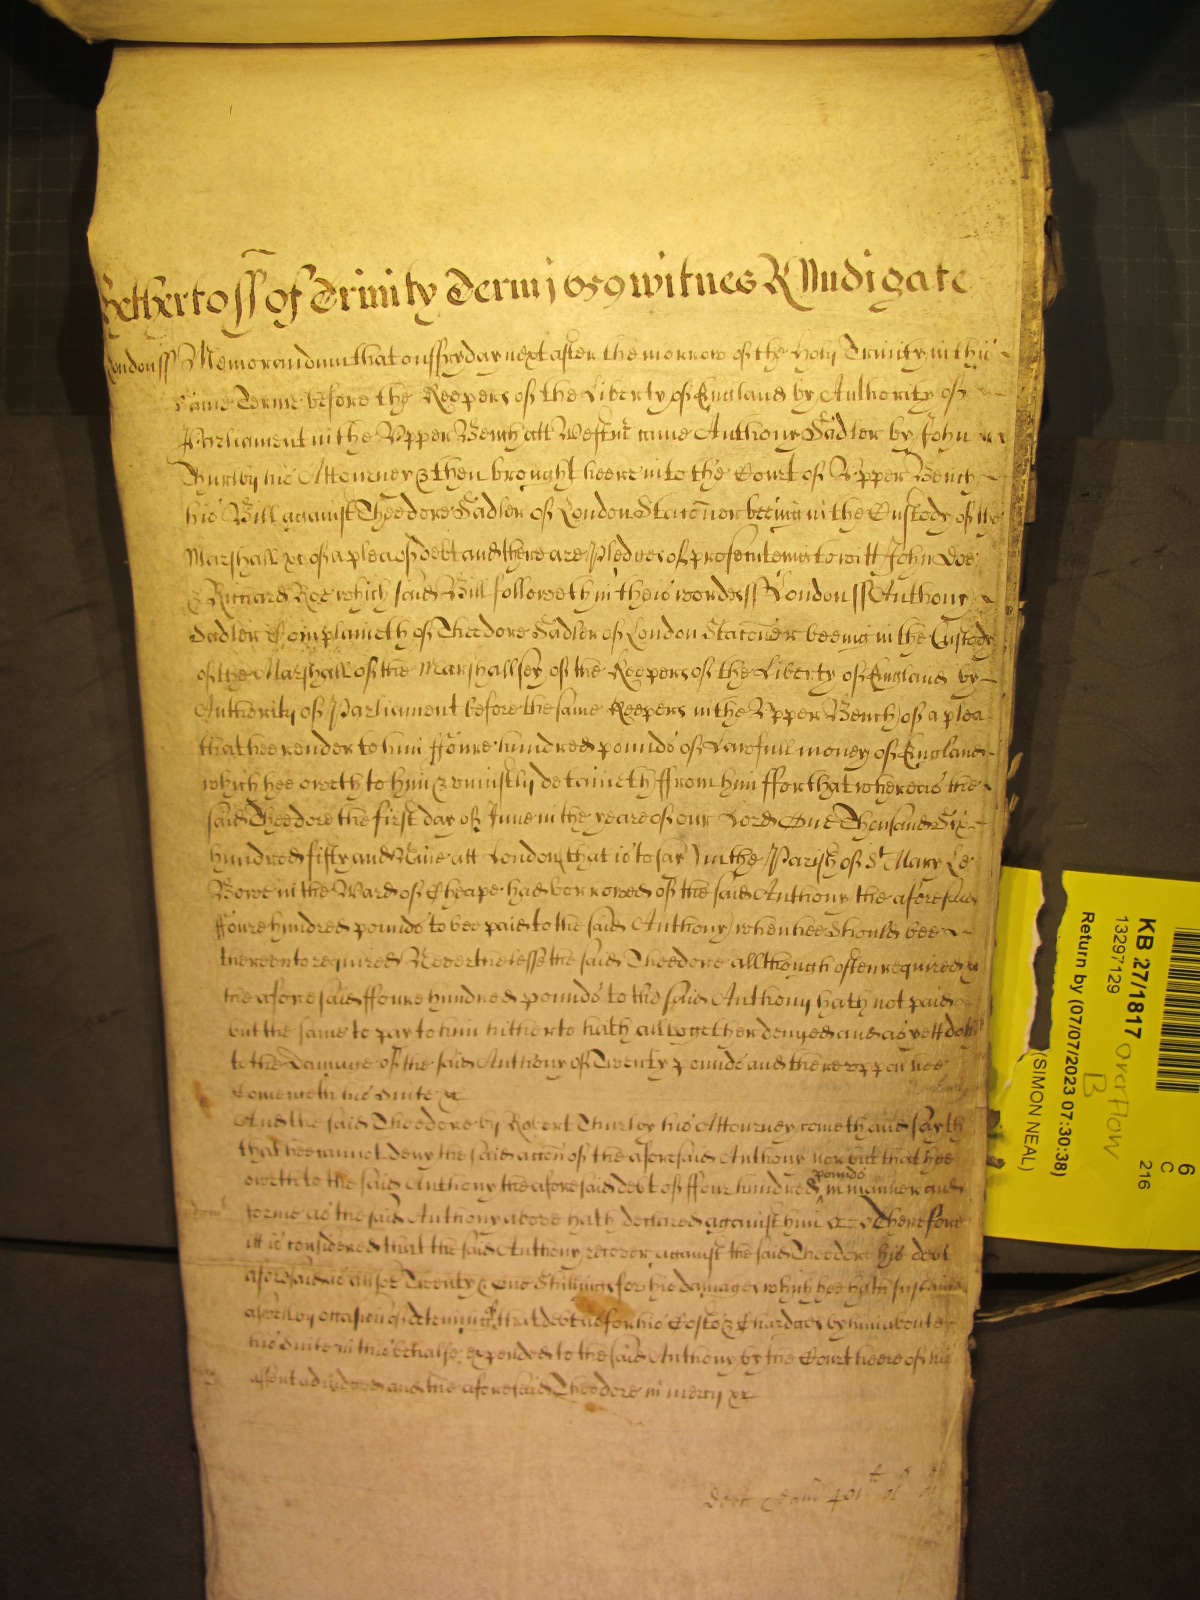 Hetherto ss of Trinity Terme 1659 witnes R Nudigate
London ss Memorandum that on ffryday next after the morrow of the Holy Trinity in this
same Terme before the Keepers of the Liberty of England by Authority of
Parliament in the Upper Bench att Westmr came Anthony Sadler by John
Thurlby his Attourney & then brought heere into the Court of Upper Bench
his Bill against Theodore Sadler of London Staconer beeing in the Custody of the
Marshall &c of a plea of debt and there are Pledges of prosecuteing to witt John Doe
& Richard Roe which said Bill followeth in theis wordes ss London ss Anthony
Sadler Complaineth of Theodore Sadler of London Staconer beeing in the Custody
of the Marshall of the Marshallsey of the Keepers of the Liberty of England by
Authority of Parliament before the same Keepers in the Upper Bench of a plea
that hee render to him ffoure hundred pounds of Lawfull money of England
which hee oweth to him & uniustly detaineth ffrom him ffor that whereas the
said Theodore the first day of June in the yeare of our Lord One Thousand Six
hundred fifty and Nine att London (that is to say) in the Parish of St Mary Le
Bowe in the Ward of Cheape had borrowed of the said Anthony the aforesaid
ffoure hundred pounds to bee paid to the said Anthony when hee should bee
thereunto required Neverthelesse the said Theodore allthough often required &c
the aforesaid ffoure hundred pounds to the said Anthony hath not paid
but the same to pay to him hitherto hath alltogether denyed and as yett doth
to the Damage of the said Anthony of Twenty pounds and thereuppon hee
bringeth his Suite &c
And the said Theodore by Robert Thurlby his Attourney cometh and sayth
that hee cannot deny the said accon of the aforesaid Anthony nor but that hee
oweth to the said Anthony the aforesaid debt of ffour hundred pounds in manner and
forme as the said Anthony above hath declared against him &c Therefore
itt is considered that the said Anthony recover against the said Theodore his debt
aforesaid as allsoe Twenty & one Shillings for his damages which hee hath sustained
aswell by occasion of deteining of that debt as for his Costs & Chardges by him about
his Suite in this behalfe expended to the said Anthony by the Court heere of his
assent adiudged and the aforesaid Theodore in mercy &c
Debt Dam 401 li 01 s 01
KB 27/1817
13297129
Return by (07/07/2023 07:30:38)
(SIMON NEAL)
overflow
B
6
C
216